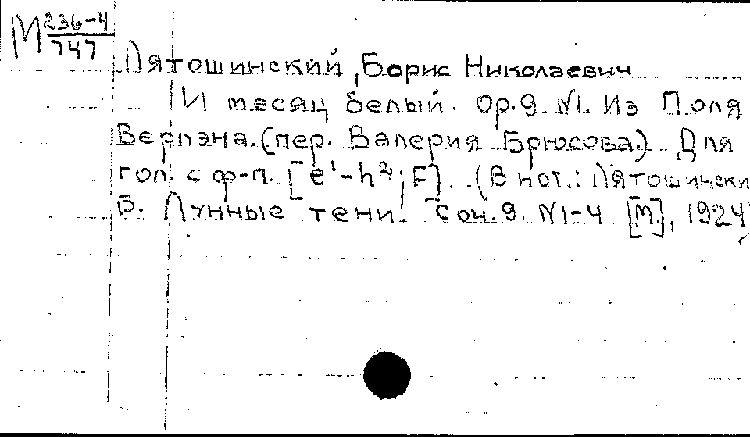 М 236-4
747
Лятошинский, Борис Николаевич
И месяц белый. Ор.9. №1. Из Поля
Верлэна. (пер. Валерия Брюсова.) Для
гол. с ф-п. [e¹-h²; F]. (В нот.: Лятошински
Б. Лунные тени. Соч.9. №1-4 [М], 1924